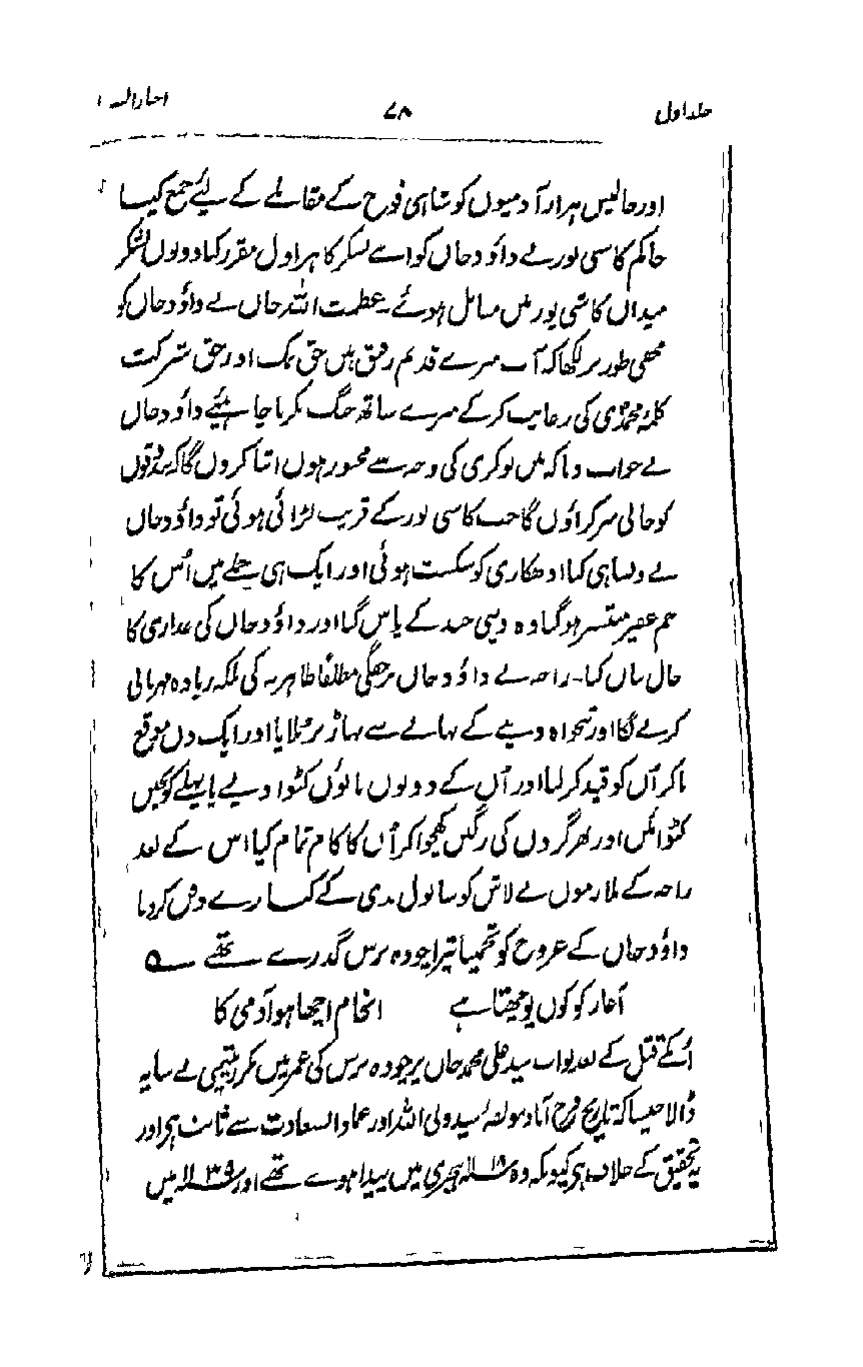 جلد اول ۷۸ اخبارالصنادید
اور چالیس ہزار آدمیوں کو شاہی فوج کے مقابلے کے لیے جمع کیا
حاکم کاشی پور نے داؤد خاں کو اپنے لشکر کا ہراول مقرر کیا دونوں لشکر
میدان کاشی پور میں مقابل ہوئے۔ عظمت اللہ خاں نے داؤد خاں کو
مخفی طور پر لکھا کہ آپ میرے قدیم رفیق ہیں حق نمک اور حق شرکت
کلمۂ محمدی کی رعایت کرکے میرے ساتھ جنگ نکرنا چاہیئے داؤد خاں
نے جواب دیا کہ میں نوکری کی وجہ سے مجبور ہوں اتنا کروں گا کہ بندوقوں
کو خالی سر کراؤں گا جب کاشی پور کے قریب لڑائی ہوئی تو داؤد خاں
نے ویسا ہی کیا ادھکاری کو شکست ہوئی اور ایک ہی حملے میں اُس کا
جم غفیر منتشر ہوگیا وہ دیبی چند کے پاس گیا اور داؤد خاں کی غداری کا
حال بیان کیا۔ راجہ نے داؤد خاں پر خفگی مطلقاً ظاہر نہ کی بلکہ زیادہ مہربانی
کرنے لگا اور تنخواہ دینے کے بہانے سے پہاڑ پر بلایا اور ایک دن موقع
پا کر اُن کو قید کر لیا اور اُن کے دونوں پانوُں کٹوا دیے یا پہلے کونچیں
کٹوائیں اور پھر گردن کی رگیں کھچوا کر اُن کا کام تمام کیا اس کے بعد
راجہ کے ملازموں نے لاش کو سانول ندی کے کنارے دفن کر دیا
داؤد خاں کے عروج کو تخمیناً تیرا چودہ برس گذرے تھے ؎
آغاز کو کون پوچھتا ہے انجام اچھا ہو آدمی کا
اُنکے قتل کے بعد نواب سید علی محمد خاں پر چودہ برس کی عمر میں مکرر یتیمی نے سایہ
ڈالا جیسا کہ تاریخ فرخ آباد مولفۂ سید ولی اللہ اور عماد السعادت سے ثابت ہی اور
یہ تحقیق کے خلاف ہی کیونکہ وہ ۱۱۱۸ ہجری میں پیدا ہوے تھے اور ۱۱۳۹ میں